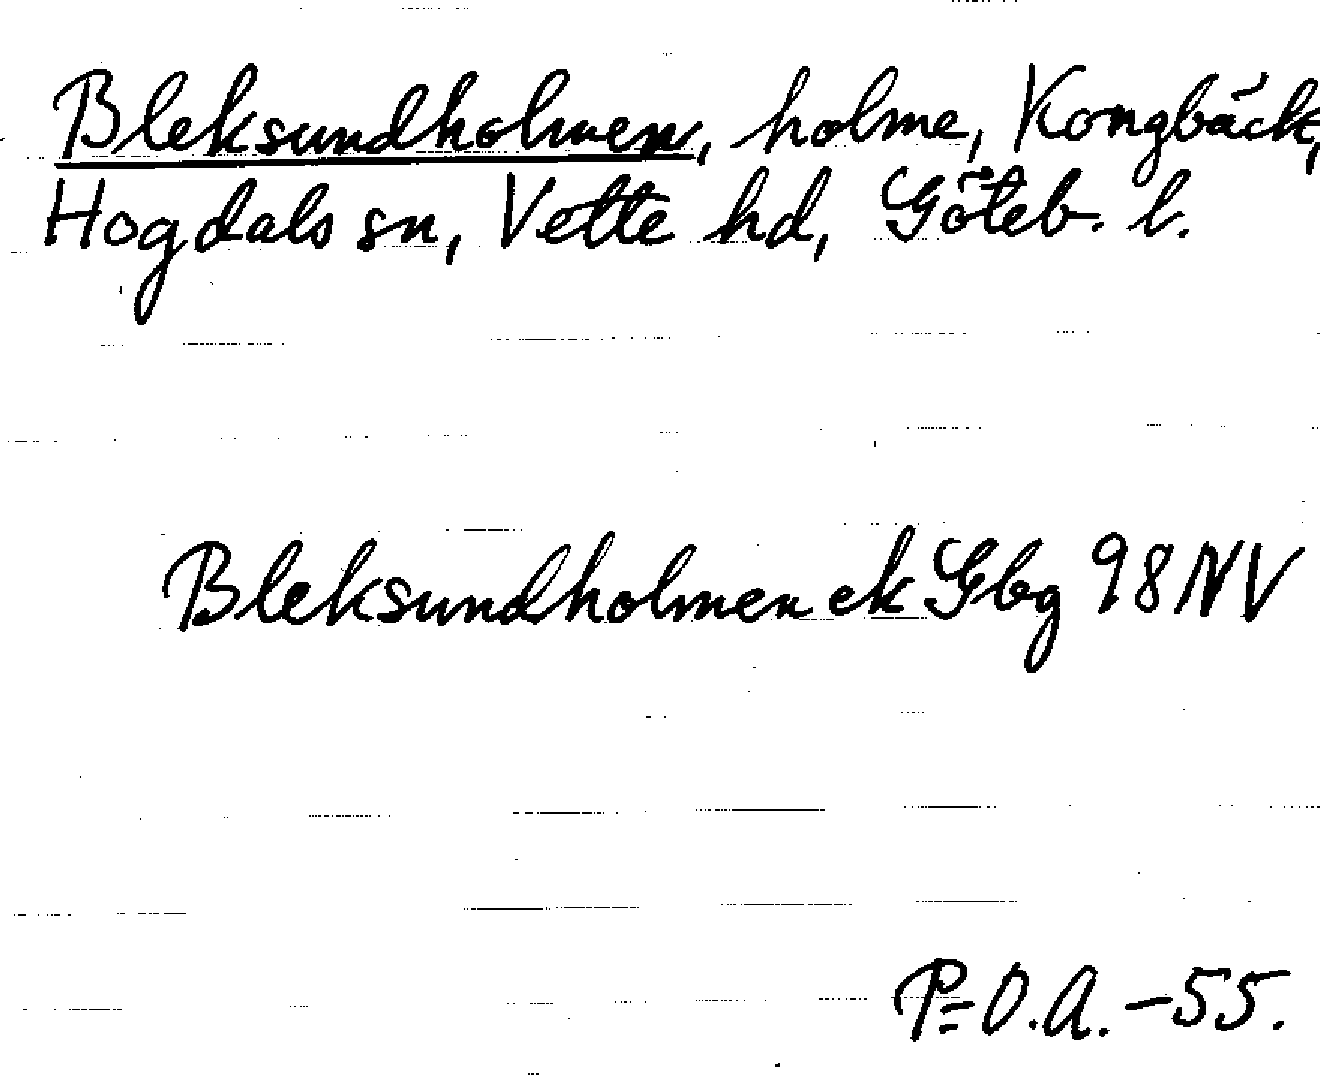 Bleksundholmen, holme, Kongbäck,
Hogdals sn, Vette hd, Göteb. l.
Bleksundholmen ek Gbg 98 NV
P=O.A. -55.